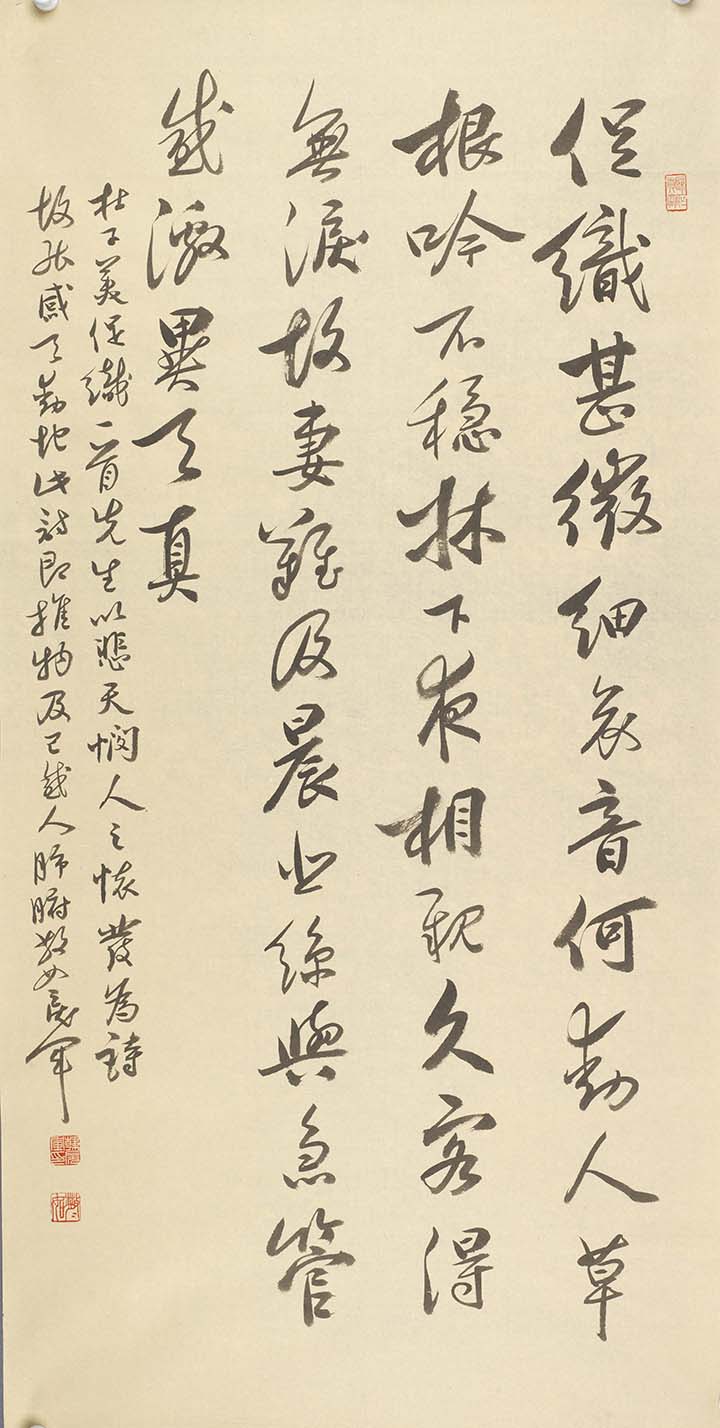 促織甚微細哀音何動人草
根吟不稳牀下夜相親久客得
無淚故妻難及晨悲絲與急管
感激異天真
杜子美促織一首先生以悲天憫人之懷發為詩
故能感天動地此詩即推物及己感人肺腑